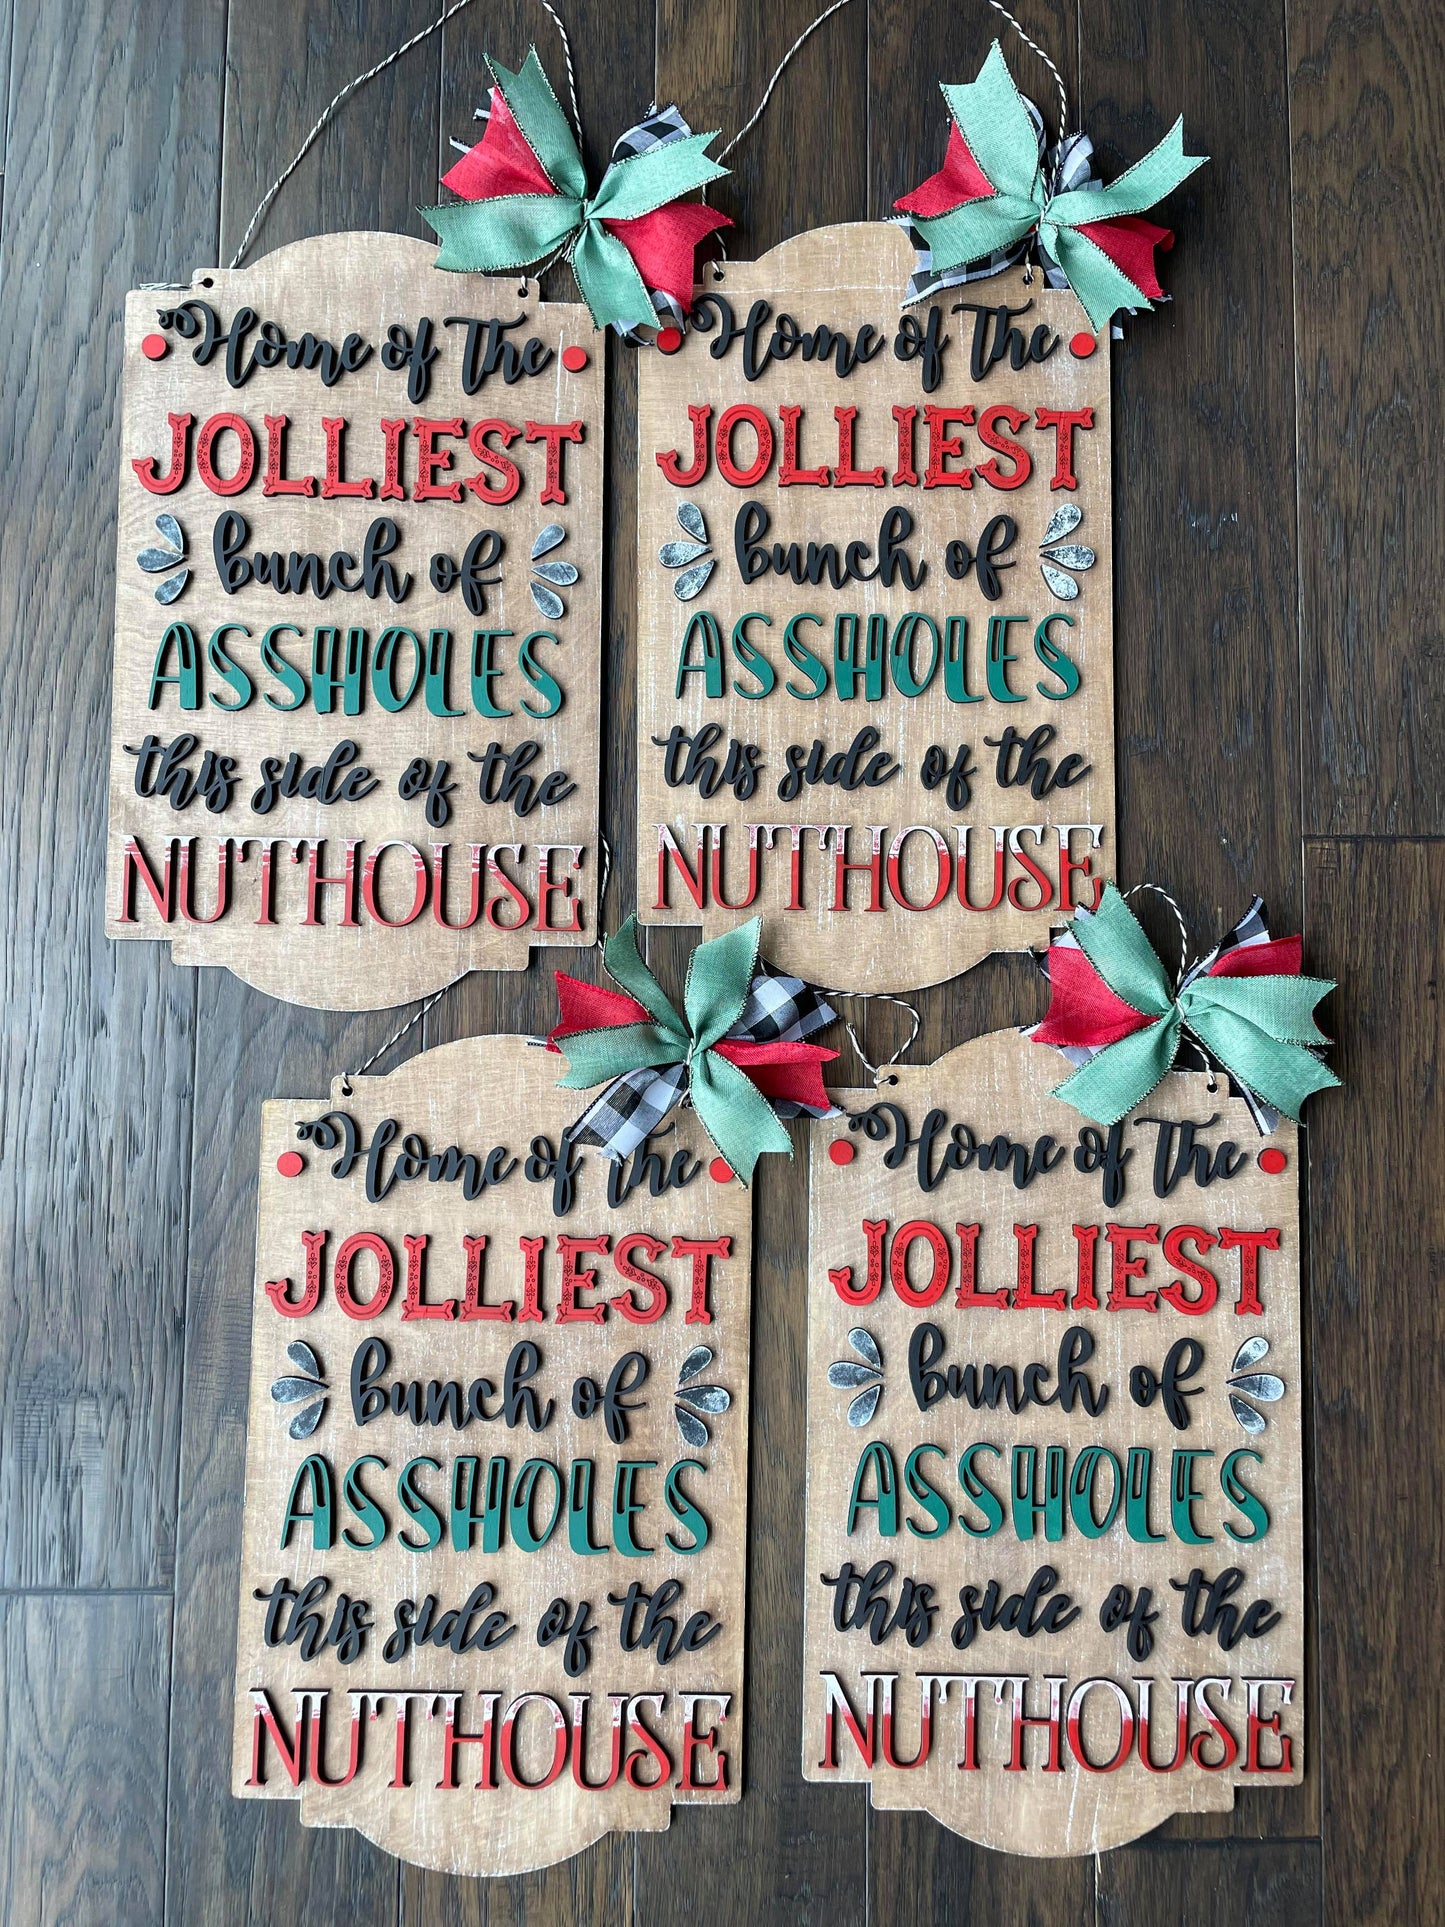 Home of The
JOLLIEST
bunch of
ASSHOLES
this side of the
NUTHOUSE
Home of The
JOLLIEST
bunch of
ASSHOLES
this side of the
NUTHOUSE
Home of The
JOLLIEST
bunch of
ASSHOLES
this side of the
NUTHOUSE
Home of The
JOLLIEST
bunch of
ASSHOLES
this side of the
NUTHOUSE